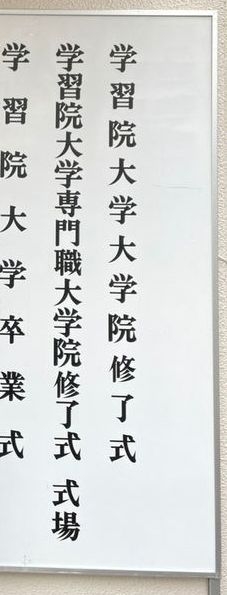 学習院大学大学院修了式
学習院大学専門職大学院修了式 式場
学習院大学卒業式